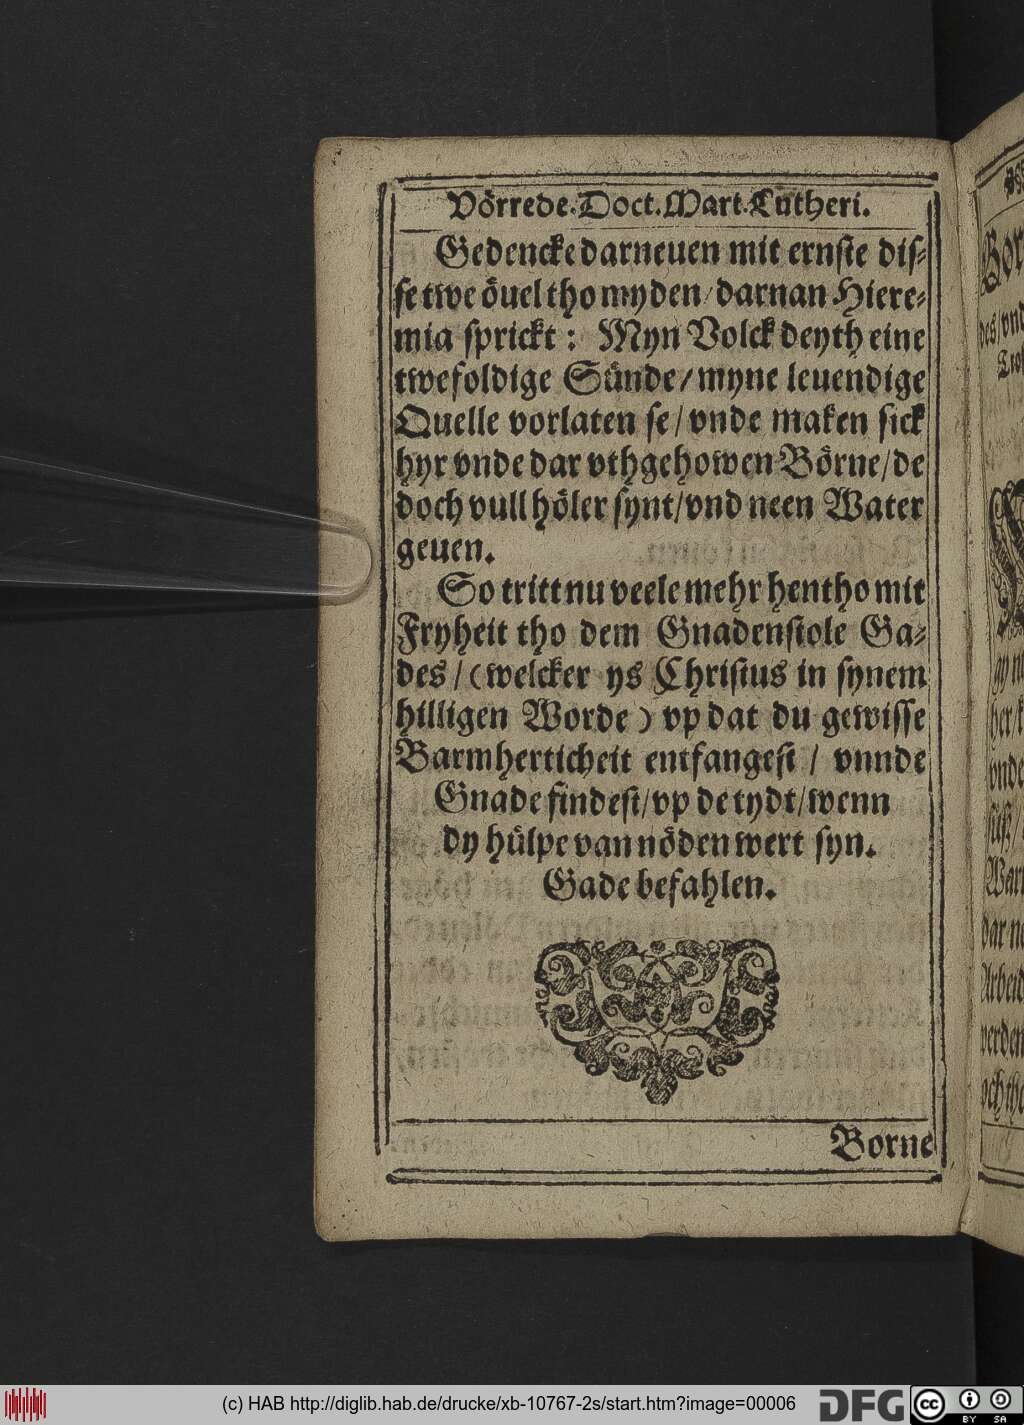 Vörrede. Doct. Mart. Lutheri.
Gedencke darneuen mit ernste dis⸗
se twe öuel tho myden / darnan Hiere⸗
mia sprickt : Myn Volck deyth eine
twefoldige Sünde / myne leuendige
Quelle vorlaten se / vnde maken sick
hyr vnde dar vthgehowen Börne / de
doch vull höler synt / vnd neen Water
geuen.
So tritt nu veele mehr hentho mit
Fryheit tho dem Gnadenstole Ga⸗
des / (welcker ys Christus in synem
hilligen Worde) vp dat du gewisse
Barmherticheit entfangest / vnnde
Gnade findest / vp de tydt / wenn
dy hülpe van nöden wert syn.
Gade befahlen.
Borne
des / vnd
vnde
Arbeid
werden
(c) HAB http://diglib.hab.de/drucke/xb-10767-2s/start.htm?image=00006
DFG
cc
BY SA